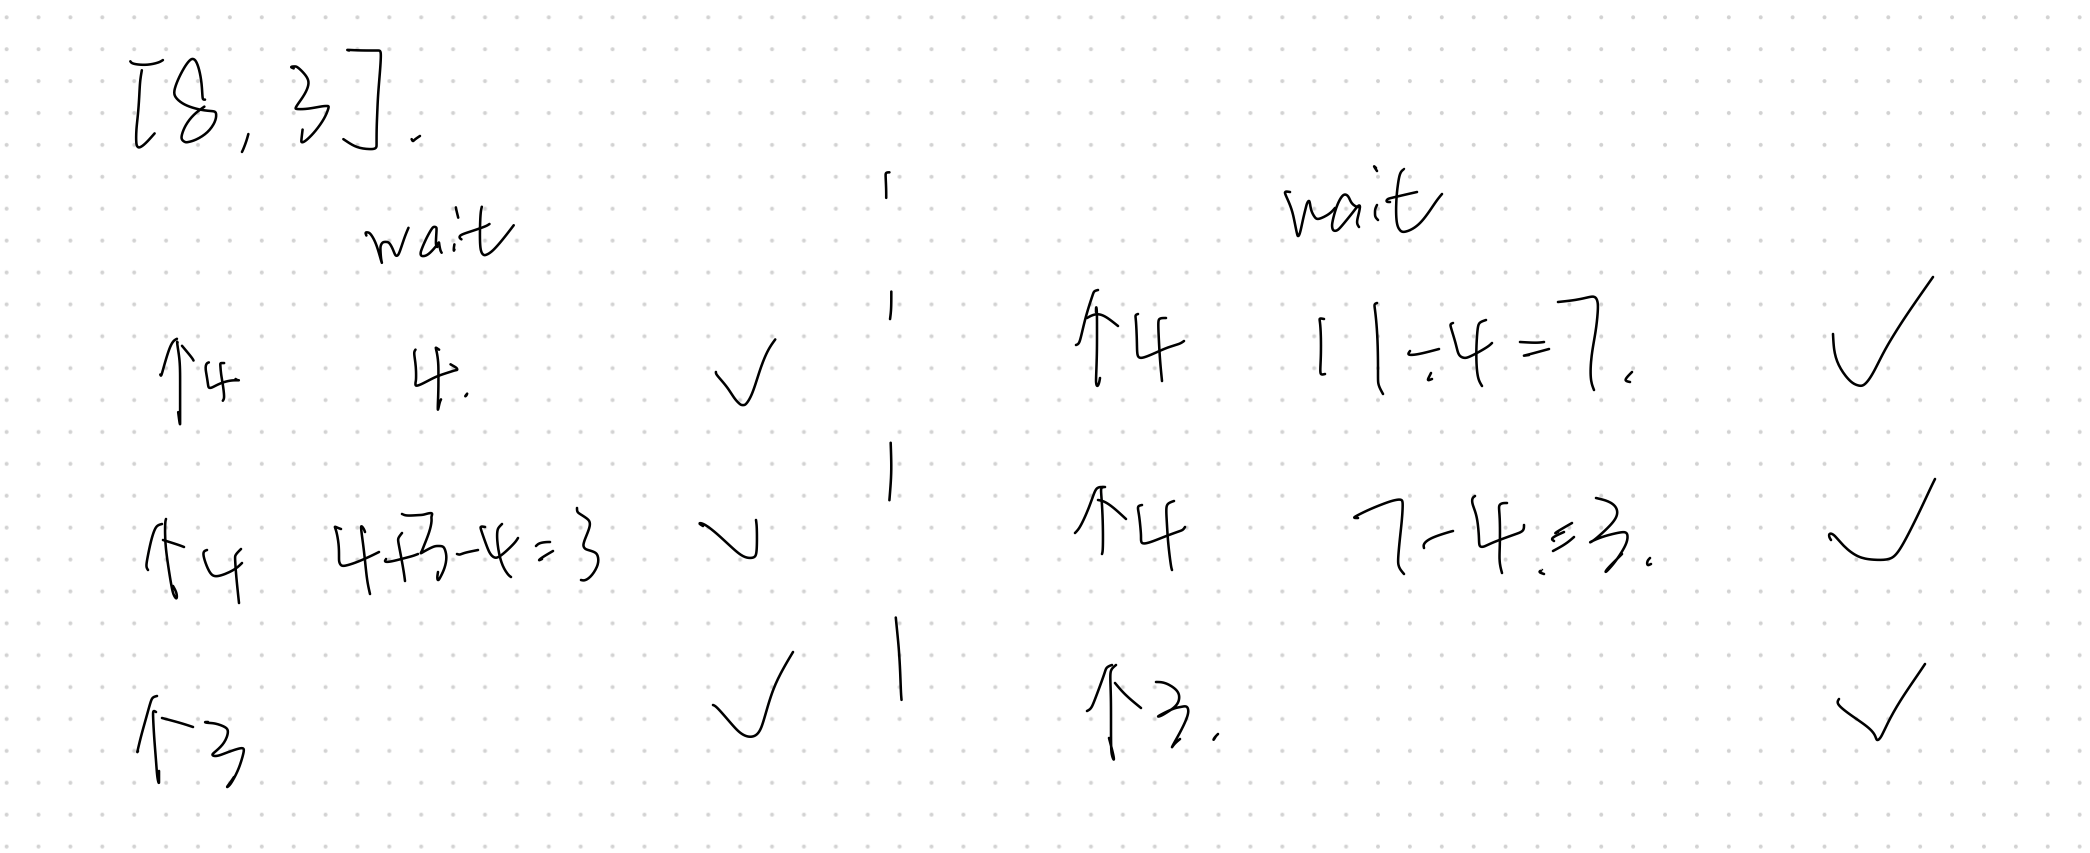 [8, 3].
wait
↑4 4. ✓
↑4 4+3-4=3 ✓
↑3 ✓
wait
↑4 11÷4=7. ✓
↑4 7-4=3. ✓
↑3. ✓